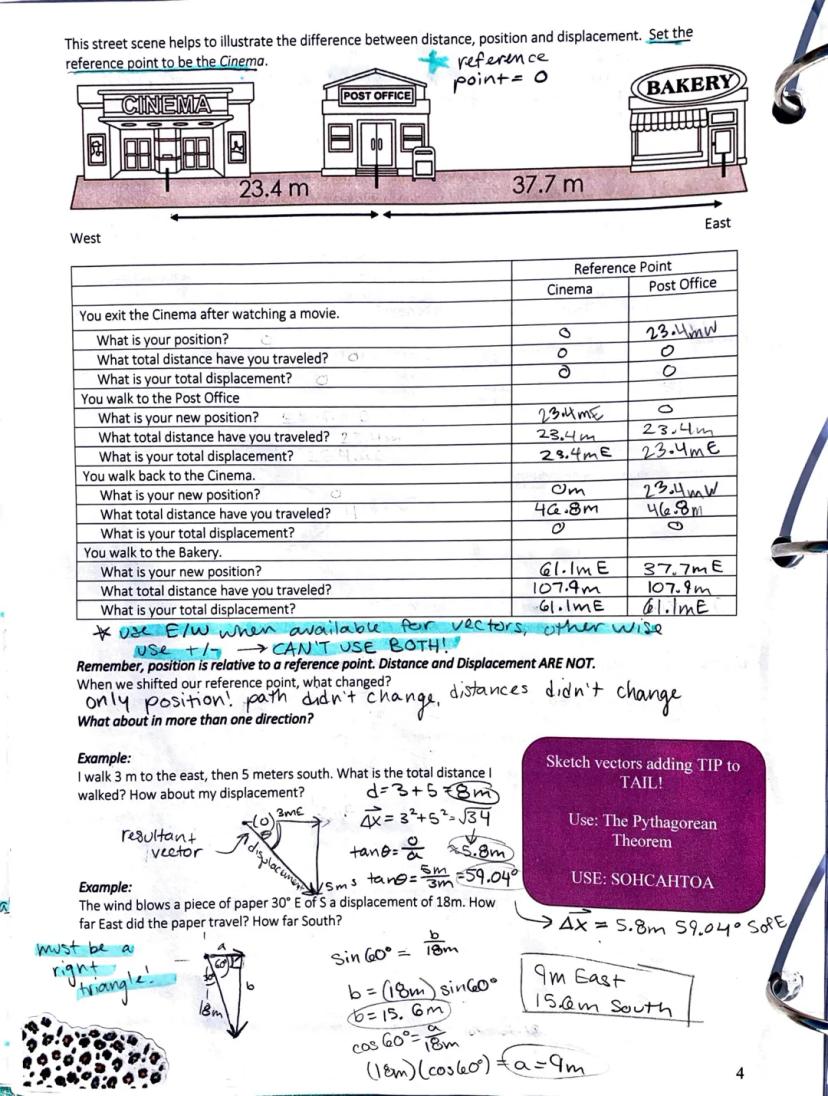 This street scene helps to illustrate the difference between distance, position and displacement. Set the
reference point to be the Cinema.
reference
point = 0
CINEMA
POST OFFICE
BAKERY
23.4 m
37.7 m
West
East
Reference Point
Cinema Post Office
You exit the Cinema after watching a movie.
What is your position? 0 23.4mW
What total distance have you traveled? 0 0
What is your total displacement? 0 0
You walk to the Post Office
What is your new position? 23.4mE 0
What total distance have you traveled? 23.4m 23.4m
What is your total displacement? 23.4mE 23.4mE
You walk back to the Cinema.
What is your new position? 0m 23.4mW
What total distance have you traveled? 46.8m 46.8m
What is your total displacement? 0 0
You walk to the Bakery.
What is your new position? 61.1mE 37.7mE
What total distance have you traveled? 107.9m 107.9m
What is your total displacement? 61.1mE 61.1mE
* use E/W when available for vectors, other wise
use +/- → CAN'T USE BOTH!
Remember, position is relative to a reference point. Distance and Displacement ARE NOT.
When we shifted our reference point, what changed?
only position! path didn't change, distances didn't change
What about in more than one direction?
Example:
I walk 3 m to the east, then 5 meters south. What is the total distance I
walked? How about my displacement?
d = 3 + 5 = 8m
(0) 3mE
θ
resultant
vector
displacement
5mS
Δx = 3²+5² = √34
≈5.8m
tanθ = o/a
tanθ = 5m/3m = 59.04°
Sketch vectors adding TIP to
TAIL!
Use: The Pythagorean
Theorem
USE: SOHCAHTOA
→ Δx = 5.8m 59.04° SofE
Example:
The wind blows a piece of paper 30° E of S a displacement of 18m. How
far East did the paper travel? How far South?
must be a
right
triangle!
a
60°
30°
b
18m
sin 60° = b/18m
b = (18m) sin60°
b = 15.6m
cos 60° = a/18m
(18m)(cos60°) = a = 9m
9m East
15.6m South
4